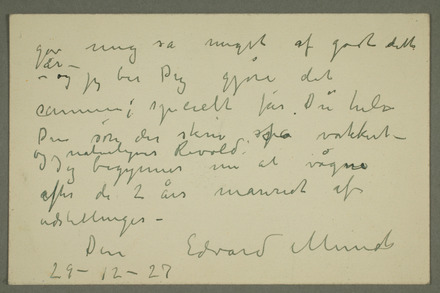 gør mig så meget af godt dette
år –
– og jeg ber Dig gjøre det
samme i specielt før. Du hilse
Den som der skrev så vakkert –
og naturligvis Revold.
Jeg begynner nu at vågne
efter de 2 års mareridt af
udstillinger –
Din Edvard Munch
29 – 12 – 27